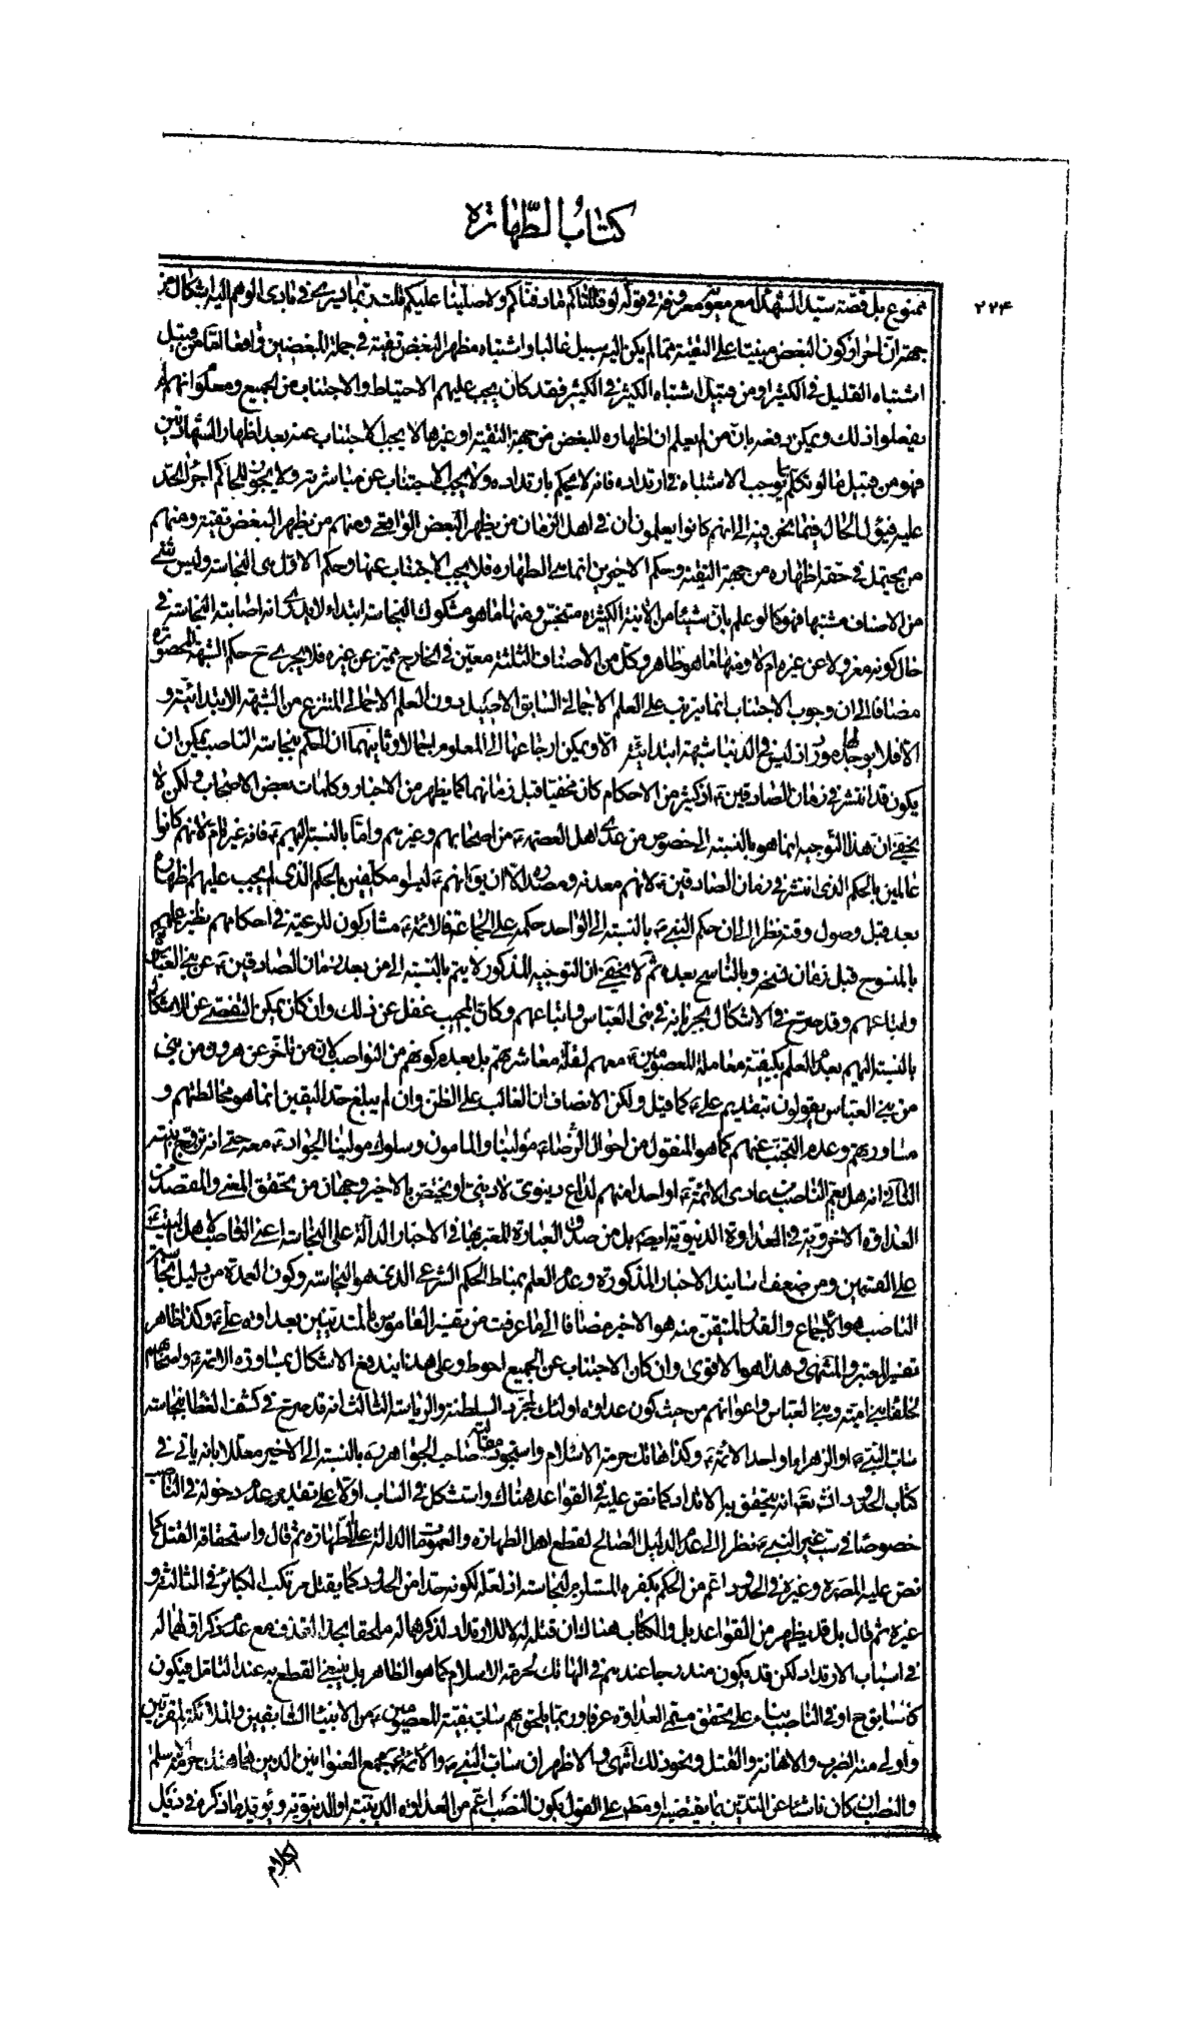 كتاب الطهارة
٢٢۴
ممنوع بل قصة سيد الشهداء مع معوية معروفة في قوله لو قتلناكم ما دفناكم ولا صلينا عليكم قلت ربما يسرى في بادى الوهم اليه اشكال من
جهة ان احراز كون البغض مبنيا على التقية مما لم يكن اليه سبيل غالبا واشتباه مظهر البغض تقية في جملة المبغضين واقعا اما من قبيل
اشتباه القليل في الكثير او من قبيل اشتباه الكثير في الكثير فقد كان يجب عليهم الاحتياط والاجتناب من الجميع ومعلوم انهم لم
يفعلوا ذلك ويمكن دفعه بان من لم يعلم ان اظهاره للبغض من جهة التقية او غيرها لا يجب الاجتناب عنه بعد اظهار الشهادتين
فهو من قبيل ما لو تكلم بما يوجب الاشتباه في ارتداده فانه لا يحكم بارتداده ولا يجب الاجتناب عن مباشرته ولا يجوز للحاكم اجراء الحد
عليه فيؤل الحال فيما نحن فيه الى انهم كانوا يعلمون ان في اهل الزمان من يظهر البغض الواقعي ومنهم من يظهر البغض تقية ومنهم
من يحتمل في حقه اظهاره من جهة التقية وحكم الاخيرين انما هي الطهارة فلا يجب الاجتناب عنها وحكم الاول هى النجاسة وليس شئ
من الاصناف مشتبها فهو كما لو علم بان شيئا من الآنية الكثيرة متنجس ومنها ما هو مشكوك النجاسة ابتداء لا يدرى انه اصابته النجاسة في
حال كونه معزولا عن غيره ام لا ومنها ما هو طاهر وكل من الاصناف الثلثة معين في الخارج مميز عن غيره فلا يجرى ح حكم الشبهة المحصورة
مضافا الى ان وجوب الاجتناب انما يترتب على العلم الاجمالي السابق الاصيل دون العلم الاجمالى المنتزع من الشبهة الابتدائية و
الا فلا يوجد لها مورد اذ ليس في الدنيا شبهة ابتدائية الا ويمكن ارجاعها الى المعلوم اجمالا وثانيهما ان الحكم بنجاسة الناصب يمكن ان
يكون قد انتشر في زمان الصادقين ع اذ كثير من الاحكام كان مخفيا قبل زمانهما كما يظهر من الاخبار وكلمات بعض الاصحاب ولكن لا
يخفى ان هذا التوجيه انما هو بالنسبة الى خصوص من عدى اهل العصمة ع من اصحابهم وغيرهم واما بالنسبة اليهم ع فانه غير تام لانهم كانوا
عالمين بالحكم الذى انتشر في زمان الصادقين ع لانهم معدنه ومصدره الا ان يقال انهم ع ليسوا مكلفين بالحكم الذى لم يجب عليهم اظهاره
بعد قبل وصول وقته نظرا الى ان حكم النبي ص بالنسبة الى الواحد حكمه على الجماعة فالائمة ع مشاركون للرعية في احكامهم نظير علمهم
بالمنسوخ قبل زمان نسخه وبالناسخ بعده ثم لا يخفى ان التوجيه المذكور لا يتم بالنسبة الى من بعد زمان الصادقين ع من بنى العباس
واتباعهم وقد صرح في الاشكال بجريانه في بنى العباس واتباعهم وكان المجيب غفل عن ذلك وان كان يمكن التفصى عن الاشكال
بالنسبة اليهم بعدم العلم بكيفية معاملة المعصومين ع معهم لقلة معاشرتهم بل بعدم كونهم من النواصب لان من تاخر عن هرون من بنى
من بنى العباس يقولون بتقديم على ع كما قيل ولكن الانصاف ان الغالب على الظن وان لم يبلغ حد اليقين انما هو مخالطتهم و
مساورتهم وعدم التجنب عنهم كما هو المنقول من احوال الرضا ع مولينا والمامون وسلوك مولينا الجواد ع معه حتى انه تزوج بنته
الثاني انه هل يعم الناصب من عادى الائمة ع او احدا منهم لداع دينوى لا دينى او يختص بالاخير وجهان من تحقق المعنى والمقصد من
العداوة الاخروية في العداوة الدنيوية ايضا بل من صدق العبارة المعبر بها في الاخبار الدالة على النجاسة اعنى الناصب لاهل البيت ع
على القسمين ومن ضعف اسانيد الاخبار المذكورة وعدم العلم بمناط الحكم الشرعي الذى هو النجاسة وكون العمدة من دليل نجاسة
الناصب هو الاجماع والقدر المتيقن منه هو الاخير مضافا الى ما عرفت من تفسير القاموس بالمتدينين بعداوة على ع وكذا ظاهر
تفسير المعتبر والمنتهى وهذا هو الاقوى وان كان الاجتناب عن الجميع احوط وعلى هذا يندفع الاشكال بمساورة الائمة ع واصحابهم
لخلفاء بنى امية وبنى العباس واعوانهم من حيث كون عداوة اولئك لمجرد السلطنة والرياسة الثالث انه قد صرح في كشف الغطاء بنجاسة
ساب النبي ص او الزهراء ع او احد الائمة ع وكذا هاتك حرمة الاسلام واستجود مقالته صاحب الجواهر ره بالنسبة الى الاخير معللا بانه ياتى في
كتاب الحدود انشاء الله تعالى انه يتحقق به الارتداد كما نص عليه في القواعد هناك واستشكل في الساب اولا على تقدير عدم دخوله في الناصب
خصوصا في سب غير النبي ص نظرا الى عدم الدليل الصالح لقطع اصل الطهارة والعمومات الدالة على الطهارة ثم قال واستحقاقه القتل كما
نص عليه المص ره وغيره في الحدود اعم من الحكم بكفره المستلزم لنجاسته اذ لعله لكونه حدا من الحدود كما يقتل مرتكب الكبائر في الثالثة و
غيره ثم قال بل قد يظهر من القواعد بل والكتاب هناك ان قتله له لا للارتداد لذكرهما له ملحقا بحد القذف مع عدم ذكر اولهما له
في اسباب الارتداد لكن قد يكون مندرجا عندهم في الهاتك لحرمة الاسلام كما هو الظاهر بل ينبغي القطع به عند التامل فيكون
كالساب ح او في الناصب بناء على تحقق مسمى العداوة عرفا وربما يلحق بهم ساب بقية المعصومين ع من الانبياء السابقين والملائكة المقربين
واولى منه الضرب والاهانة والقتل ونحو ذلك انتهى والاظهر ان ساب النبي ص والائمة ع مجمع العنوانين الذين هما هتك حرمة الاسلام
والنصب ان كان ناشئا عن التدين بما يقتضيه او مط على القول بكون النصب اعم من العداوة الدينية او الدنيوية ويؤيد ما ذكر في ذيل
الكلام